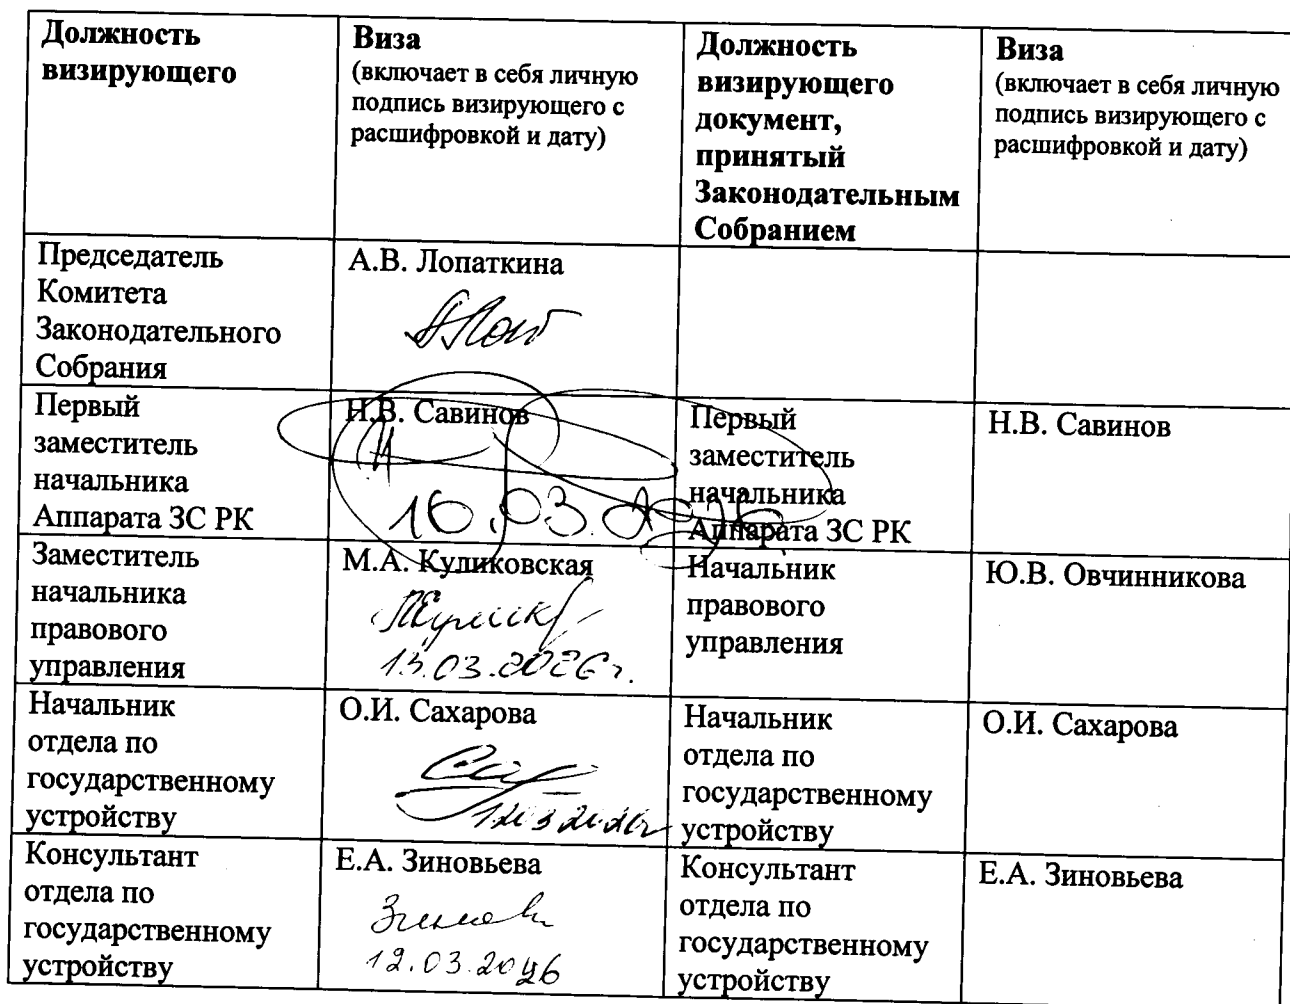 Должность
визирующего
Виза
(включает в себя личную
подпись визирующего с
расшифровкой и дату)
Должность
визирующего
документ,
принятый
Законодательным
Собранием
Виза
(включает в себя личную
подпись визирующего с
расшифровкой и дату)
Председатель
Комитета
Законодательного
Собрания
А.В. Лопаткина
Первый
заместитель
начальника
Аппарата ЗС РК
Н.В. Савинов
16.03.2026
Первый
заместитель
начальника
Аппарата ЗС РК
Н.В. Савинов
Заместитель
начальника
правового
управления
М.А. Куликовская
13.03.2026г.
Начальник
правового
управления
Ю.В. Овчинникова
Начальник
отдела по
государственному
устройству
О.И. Сахарова
Начальник
отдела по
государственному
устройству
О.И. Сахарова
Консультант
отдела по
государственному
устройству
Е.А. Зиновьева
12.03.2026
Консультант
отдела по
государственному
устройству
Е.А. Зиновьева